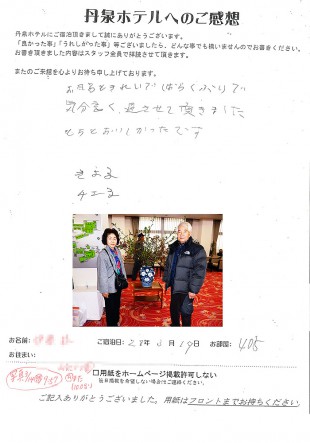 丹泉ホテルへのご感想
丹泉ホテルにご宿泊頂きまして誠にありがとうございます。
「良かった事」「うれしかった事」等ございましたら、どんな事でも構いませんのでお書きください。
お書き頂きました内容はスタッフ全員で拝読させて頂きます。
またのご来館を心よりお待ち申し上げております。
お部屋もきれいでしばらくぶりで
気分よく過させて頂きました
とてもおいしかったです
お名前: 伊藤 様
ご宿泊日: 27年 3月19日
お部屋: 405
お住まい:
口用紙をホームページ掲載許可しない
ご記入ありがとうございました。用紙はフロントまでお持ちください。